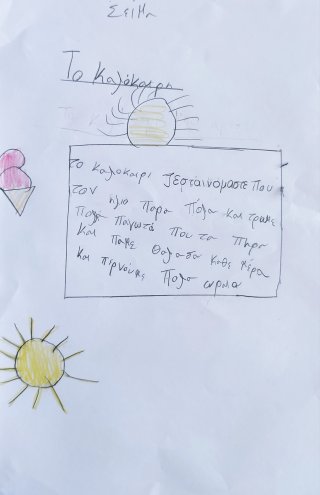 Σειμα
Το καλόκαιρη
το καλοκαιρι ζεσταινομαστε που
τον ηλιο παρα πόλα και τρωμε
πολα παγωτα που τα πηρα
και παμε θαλασα καθε μέρα
και πέρνουμε πολα ωραια